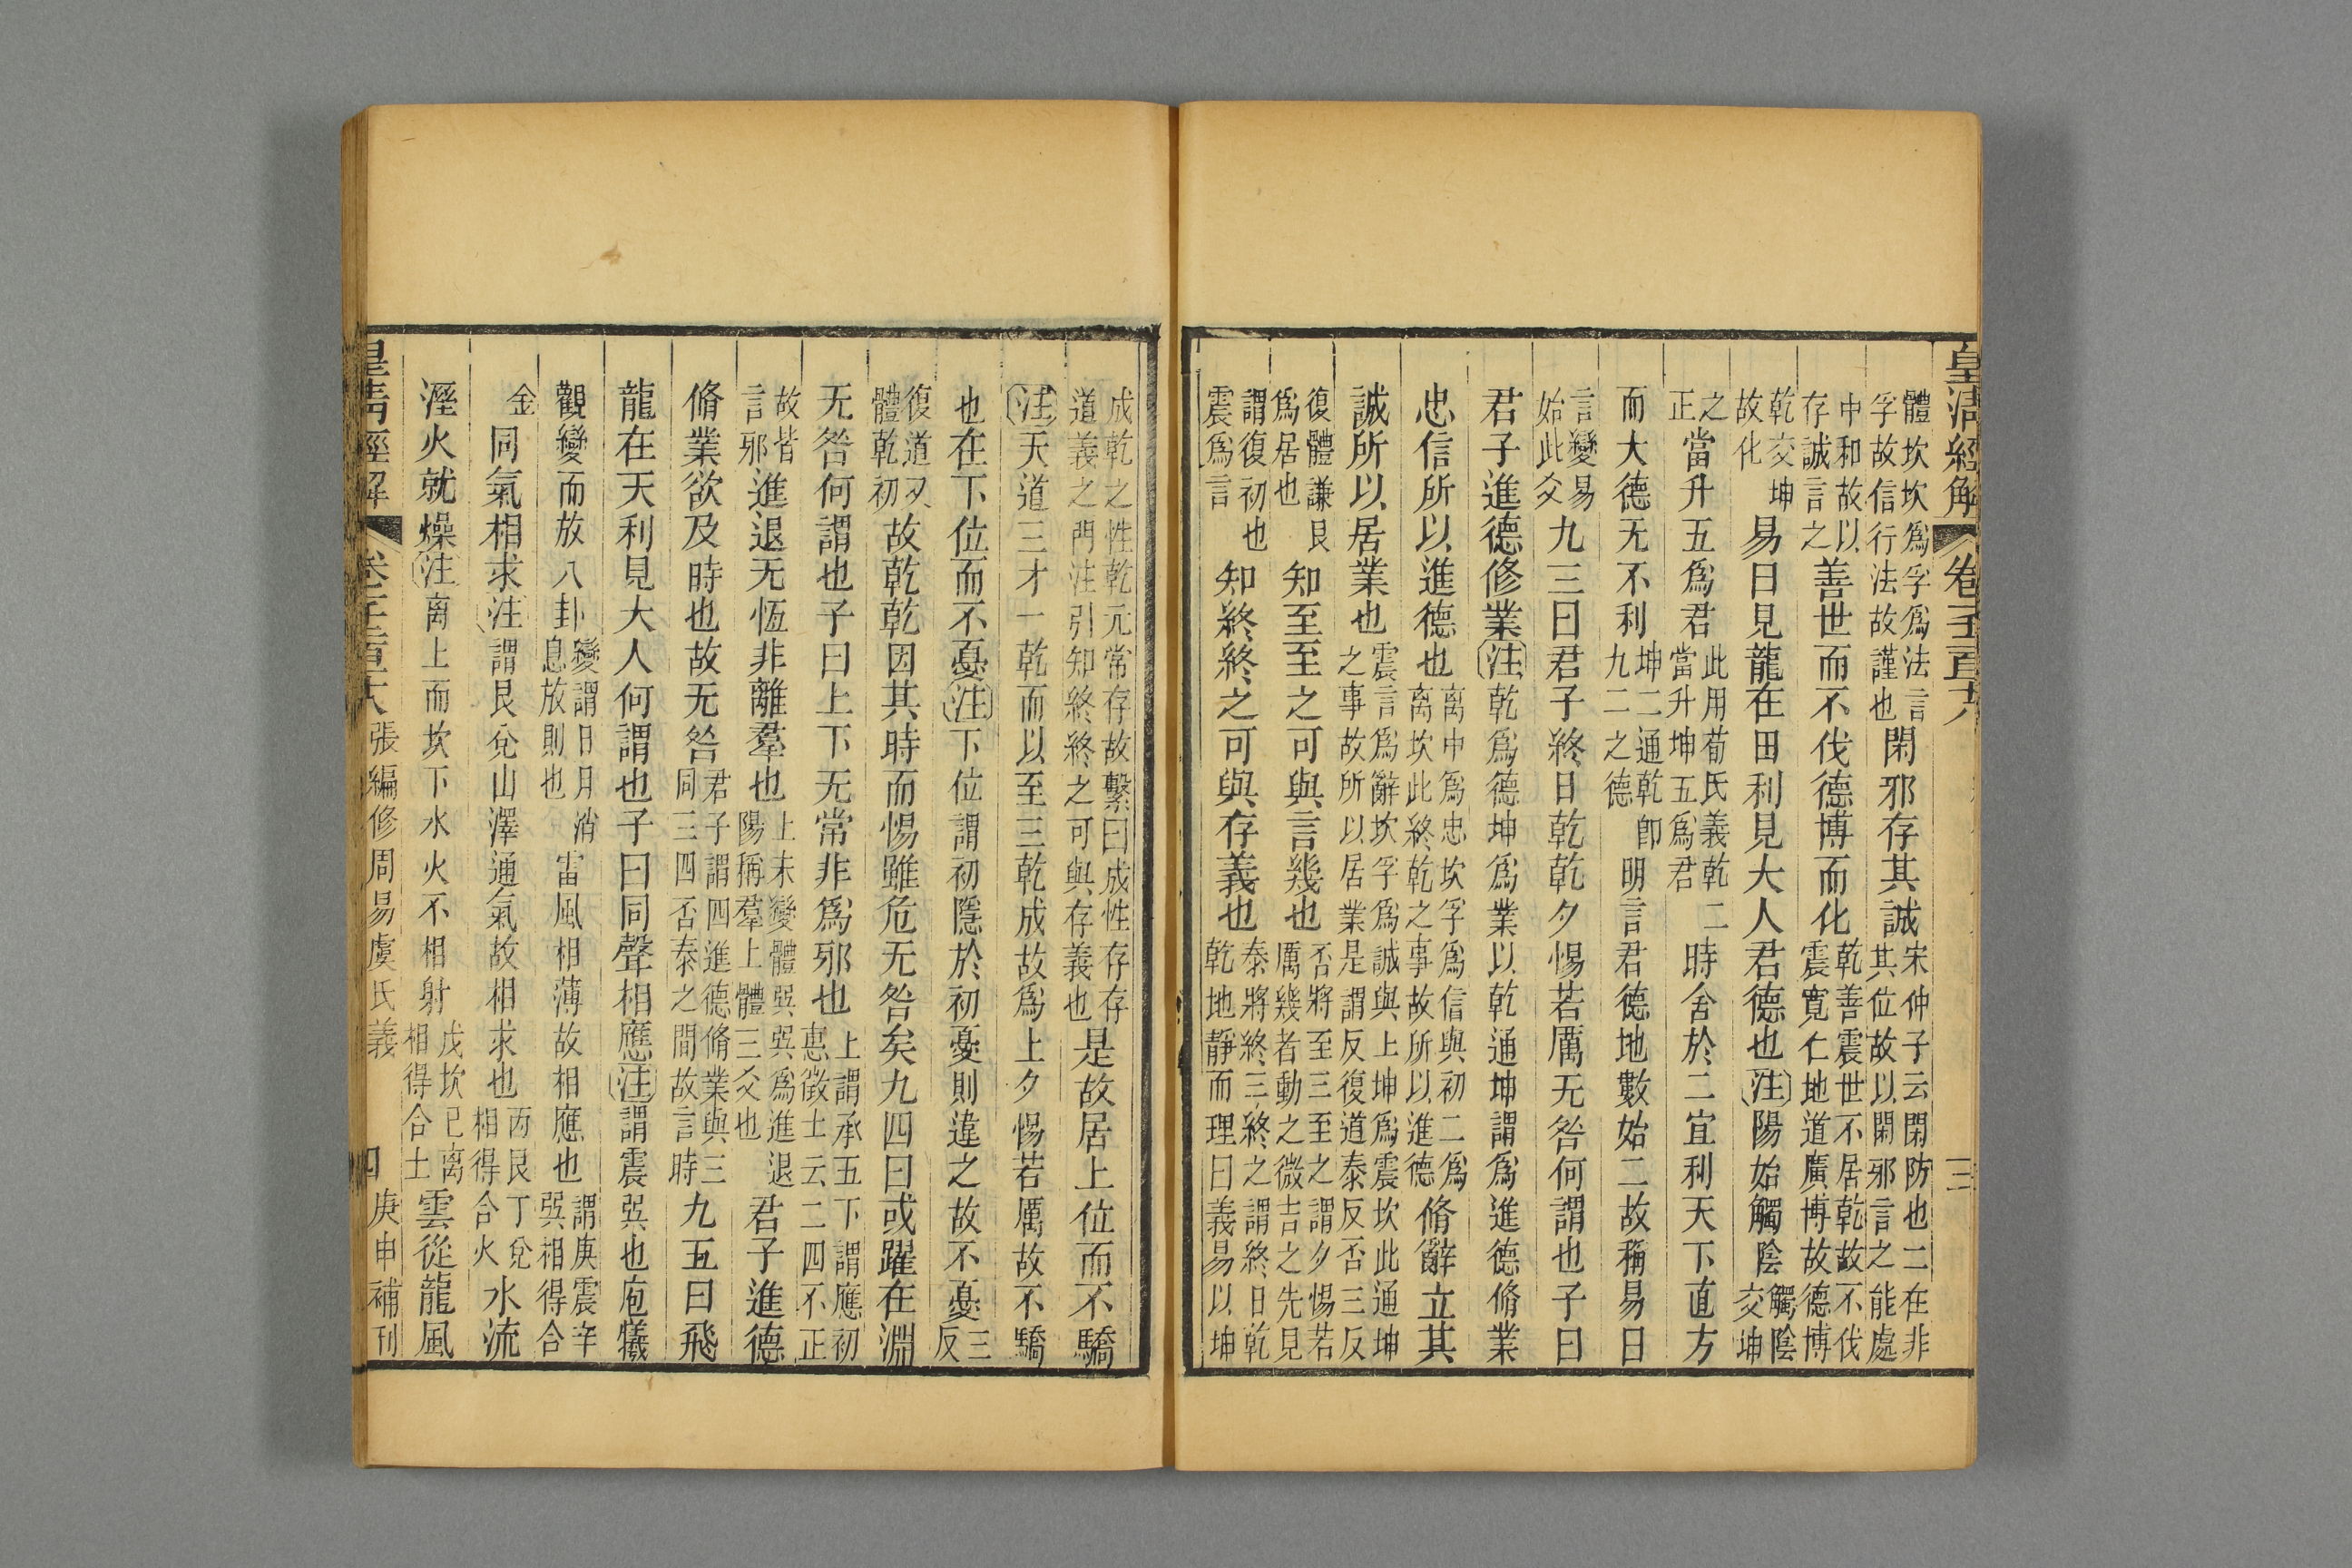 皇清經解 卷千二百十八 三
體坎坎爲孚爲法言孚故信行法故謹也閑邪存其誠宋仲子云閑防也二在非其位故以閑邪言之能處
中和故以存誠言之善世而不伐德博而化乾善震世不居乾故不伐震寬仁地道廣博故德博
乾交坤故化易曰見龍在田利見大人君德也注陽始觸陰觸陰交坤
之正當升五爲君此用荀氏義乾二當升坤五爲君時舍於二宜利天下直方
而大德无不利坤二通乾卽九二之德明言君德地數始二故稱易曰
言變易始此爻九三曰君子終日乾乾夕惕若厲无咎何謂也子曰
君子進德修業注乾爲德坤爲業以乾通坤謂爲進德脩業
忠信所以進德也离中爲忠坎孚爲信與初二爲离坎此終乾之事故所以進德脩辭立其
誠所以居業也震言爲辭坎孚爲誠與上坤爲震坎此通坤之事故所以居業是謂反復道泰反否三反
復體謙艮爲居也知至至之可與言幾也否將至三至之謂夕惕若厲幾者動之微吉之先見
謂復初也震爲言知終終之可與存義也泰將終三終之謂終日乾乾地靜而理曰義易以坤
成乾之性乾元常存故繫曰成性存存道義之門注引知終終之可與存義也是故居上位而不驕
注天道三才一乾而以至三乾成故爲上夕惕若厲故不驕
也在下位而不憂注下位謂初隱於初憂則違之故不憂三反
復道又體乾初故乾乾因其時而惕雖危无咎矣九四曰或躍在淵
无咎何謂也子曰上下无常非爲邪也上謂承五下謂應初惠徵士云二四不正
故皆言邪進退无恆非離羣也上未變體巽巽爲進退陽稱羣上體三爻也君子進德
脩業欲及時也故无咎君子謂四進德脩業與三同三四否泰之間故言時九五曰飛
龍在天利見大人何謂也子曰同聲相應注謂震巽也庖犧
觀變而放八卦變謂日月消息放則也雷風相薄故相應也謂庚震辛巽相得合
金同氣相求注謂艮兌山澤通氣故相求也丙艮丁兌相得合火水流
溼火就燥注离上而坎下水火不相射戊坎己离相得合土雲從龍風
皇清經解 卷千二百十八 張編修周易虞氏義 四 庚申補刊